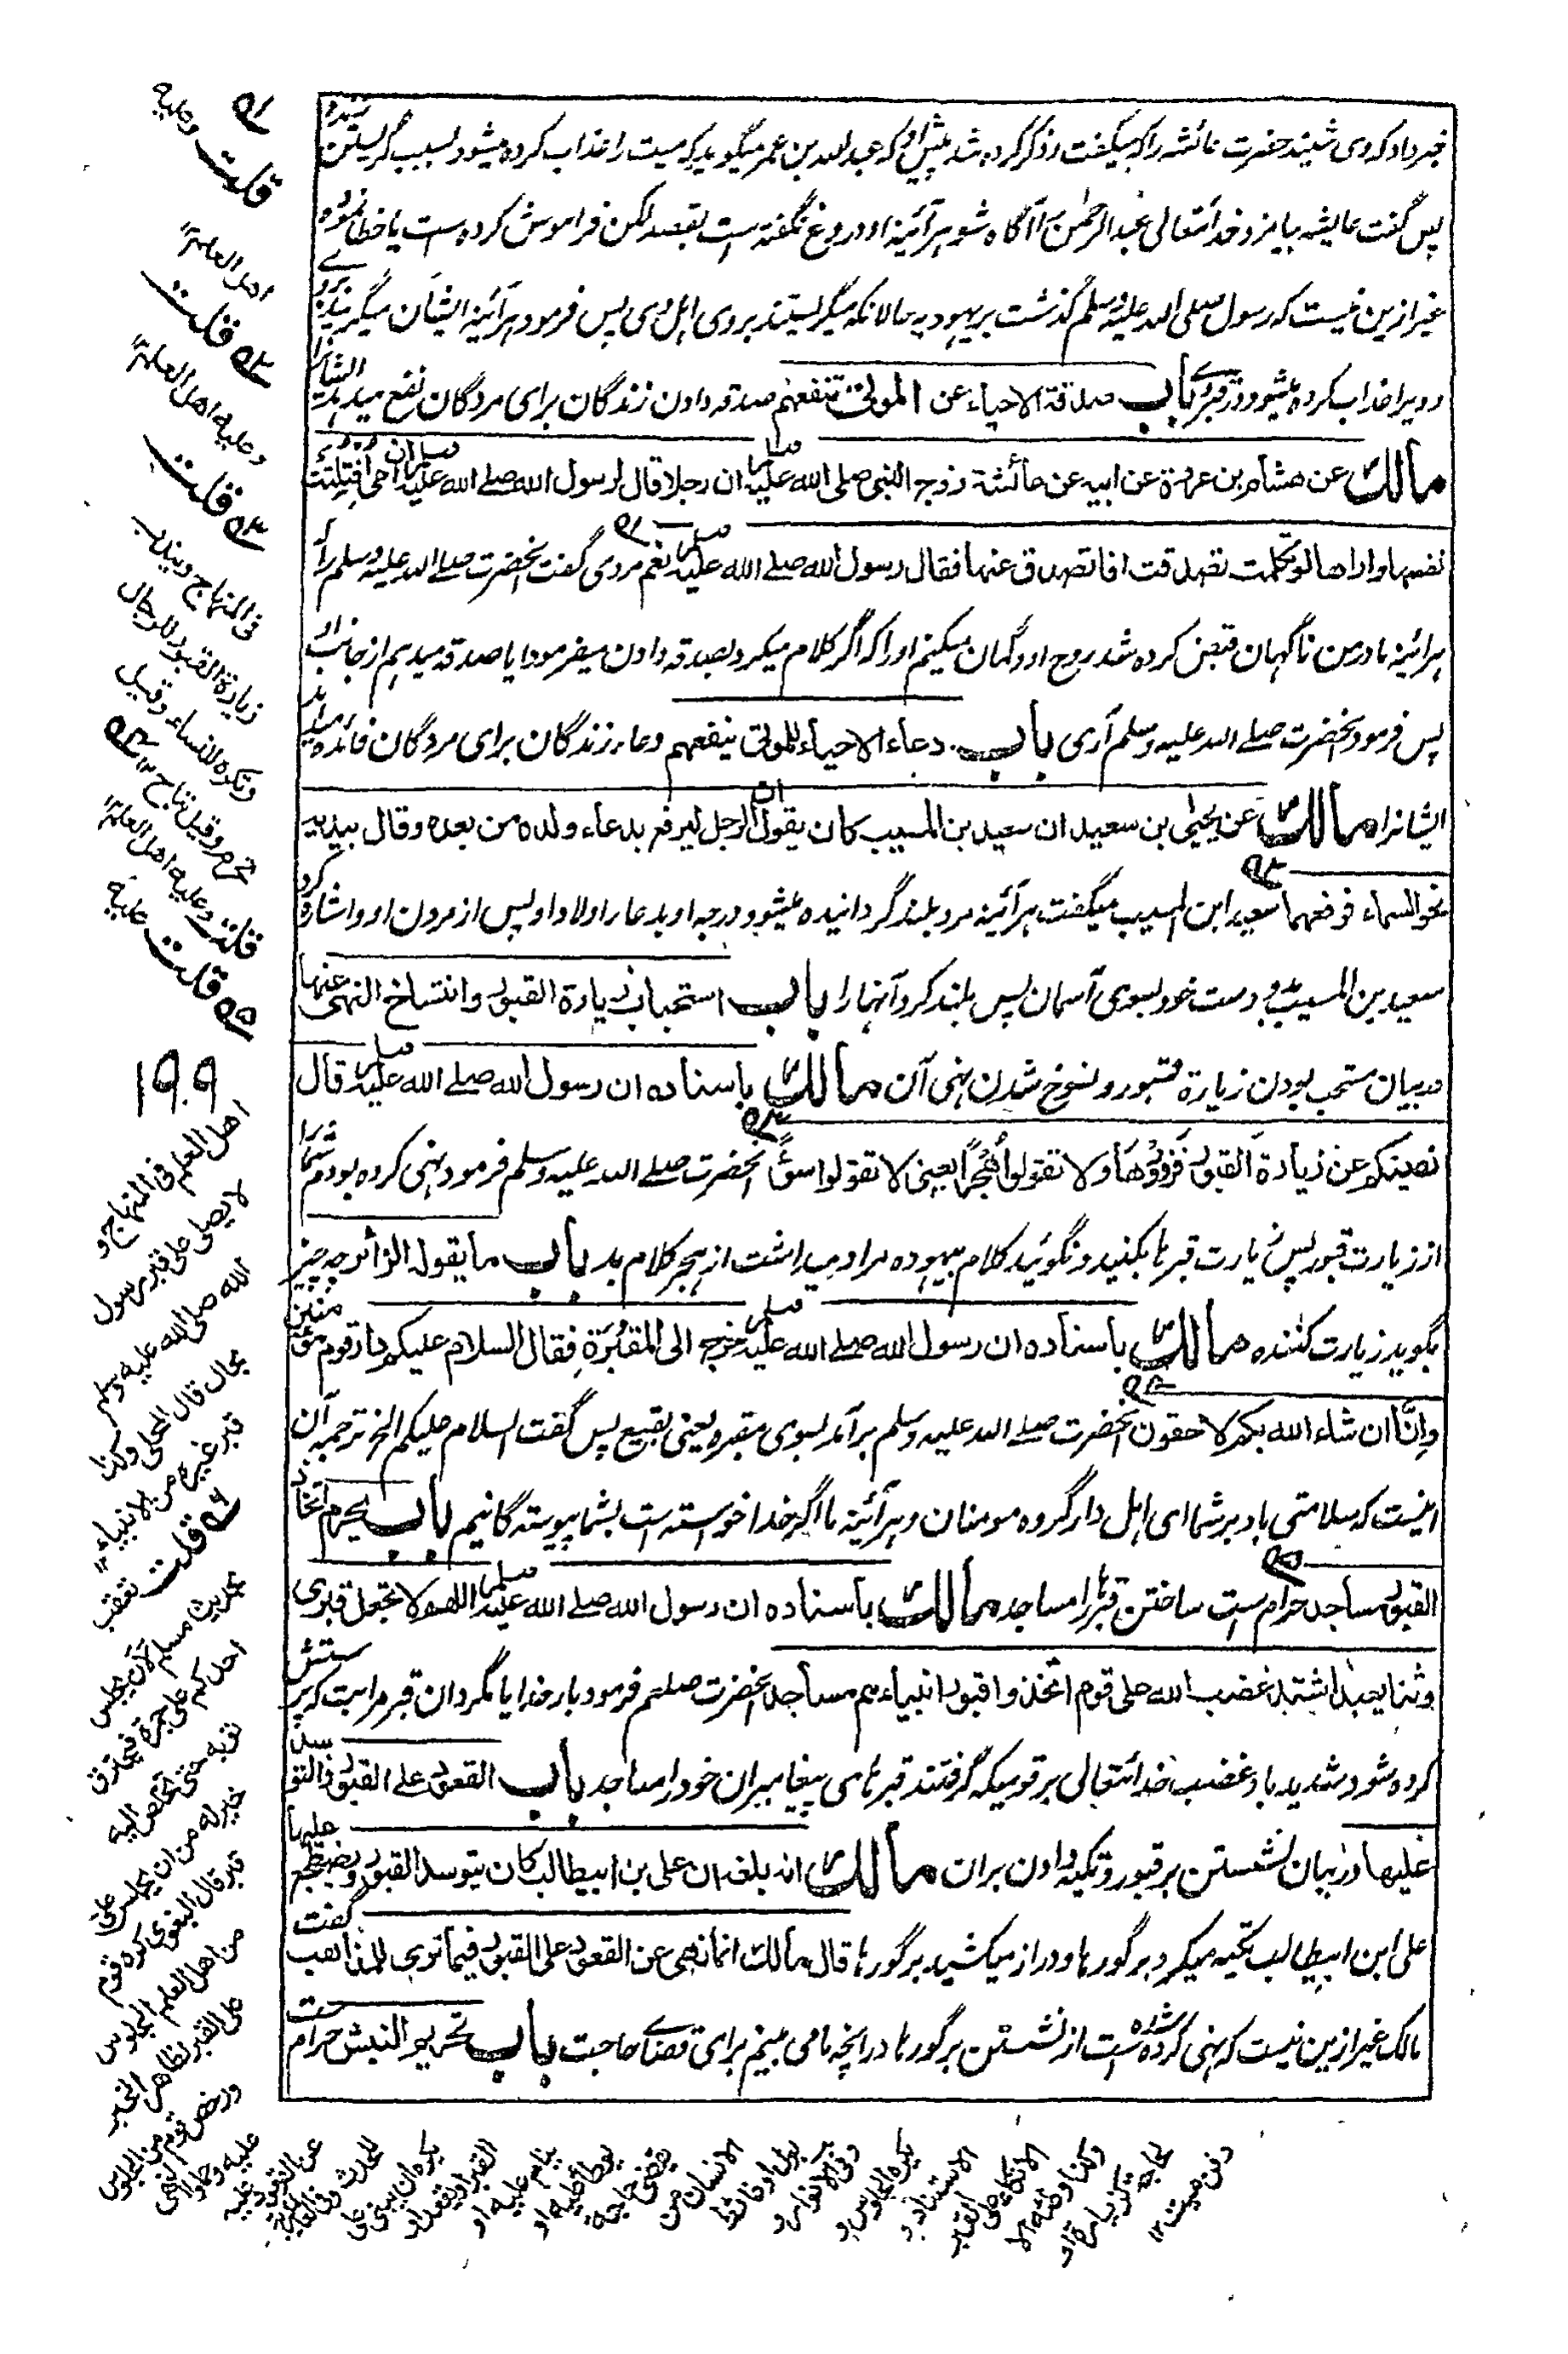 خبر داد که وی شنید حضرت عائشه را که میگفت و ذکر کرده شد پیش او که عبد الله بن عمر میگوید که میت را عذاب کرده میشود بسبب گریستن زنده
پس گفت عایشه بیامرزد خدا تعالی ابا عبد الرحمن را آگاه شو هر آئینه او دروغ نگفته است بقصد لکن فراموش کرده است یا خطا نموده
غیر ازین نیست که رسول صلی الله علیه وسلم گذشت بر یهودیه حالانکه میگریستند بروی اهل وی پس فرمود هر آئینه ایشان میگریند بروے
و ویرا عذاب کرده میشود در قبر وے باب صدقة الاحياء عن الموتى تنفعهم صدقه دادن زندگان برای مردگان نفع میدهد ایشانرا
مالك عن هشام بن عروة عن ابيه عن عائشة زوج النبي صلى الله عليه وسلم ان رجلا قال لرسول الله صلے الله عليه وسلم ان امي افتلتت
نفسها واراها لو تكلمت تصدقت افاتصدق عنها فقال رسول الله صلے الله عليه وسلم نعم مردی گفت آنحضرت صلے الله علیه وسلم را که
هر آئینه مادر من ناگهان قبض کرده شد روح او و گمان میکنم او را که اگر کلام میکرد بصدقه دادن میفرمود ایا صدقه میدهم از جانب او
پس فرمود آنحضرت صلے الله علیه وسلم آری باب دعاء الاحياء للموتى ينفعهم دعاء زندگان برای مردگان فائده میدهد
ایشانرا مالك عن يحيى بن سعيد ان سعيد بن المسيب كان يقول ان الرجل ليرفع بدعاء ولده من بعده وقال بيديه
نحو السماء فرفعهما سعید ابن المسیب میگفت هر آئینه مرد بلند گردانیده میشود درجه او بدعاء اولاد او پس از مردن او و اشاره کرد
سعید بن المسیب بدو دست خود بسوی آسمان پس بلند کرد آنها را باب استحباب زيارة القبور وانتساخ النهي عنها
در بیان مستحب بودن زیارة قبور و نسوخ شدن نهی آن مالك باسناده ان رسول الله صلے الله عليه وسلم قال
نهيتكم عن زيارة القبور فزوروها ولا تقولوا هُجرًا يعني لا تقولوا سوءً آنحضرت صلے الله علیه وسلم فرمود نهی کرده بودم شما را
از زیارت قبور پس زیارت قبرها بکنید و نگوئید کلام بیهوده مراد میداشت از هجر کلام بد باب ما يقول الزائر چه چیز
بگوید زیارت کننده مالك باسناده ان رسول الله صلے الله عليه وسلم خرج الى المقبُرَةِ فقال السلام عليكم دار قوم مؤمنين
وإنّا ان شاء الله بكم لاحقون آنحضرت صلے الله علیه وسلم برآمد بسوی مقبره یعنی بقیع پس گفت السلام علیکم الخ ترجمه آن
اینست که سلامتی باد بر شما ای اهل دار گروه مومنان و هر آئینه ما اگر خدا خواسته است بشما پیوسته گانیم باب يحرم اتخاذ
القبور مساجد حرام است ساختن قبرها را مساجد مالك باسناده ان رسول الله صلے الله عليه وسلم اللهم لا تجعل قبري
وثنا يعبد اشتد غضب الله على قوم اتخذوا قبور انبياءهم مساجد آنحضرت صلعم فرمود بار خدایا مگردان قبر مرا بت که پرستش
کرده شود شدید باد غضب خدا تعالی بر قومیکه گرفتند قبرهای پیغامبران خود را مساجد باب القعود على القبور والتوسد
عليها در بیان نشستن بر قبور و تکیه دادن بران مالك انه بلغه ان علي بن ابيطالب كان يتوسد القبور ويضطجع عليها
علی ابن ابیطالب تکیه میکرد بر گورها و دراز میکشید بر گورها قال مالك انما نهي عن القعود على القبور فيما نرى للمذاهب گفت
مالک غیر ازین نیست که نهی کرده شده است از نشستن بر گورها در آنچه ما می بینم برای قضاے حاجت باب تحريم النبش حرام ست
۵۱
قلت وعليه
اهل العلم
۵۲ قلت
وعليه اهل العلم
۵۳ قلت
في المنهاج ويندب
زيارة القبور للرجال
وتكره للنساء وقيل
تحرم وقيل تباح ۱۲ ۵۴
قلت وعليه اهل العلم
۵۵ قلت عليه
۱۹۹
اهل العلم في المنهاج و
لا يصلى على قبر رسول
الله صلى الله عليه وسلم
بحال قال المحلي وكذا
قبر غيره من الانبياء ۱۲
۵۶ قلت تعقب
بحديث مسلم لان يجلس
احدكم على جمرة فيحترق
ثوبه حتى تخلص اليه
خير له من ان يجلس على
قبر قال البغوي كره قوم
من اهل العلم الجلوس
على القبر لظاهر الخبر
ورخص قوم من الجلوس
عليه وحملوا النهي
عن القعود عليه
للحدث وفي العالمگيرية
يكره ان يبني على
القبر او يقعد او
ينام عليه او
يوطأ عليه او
يقضى حاجة
الانسان من
بول او غائط
وفي الانوار و
يكره الجلوس و
الاستناد و
الاتكاء على القبر
وكذا وطئه الا
لحاجة كزيارة او
دفن ميت ۱۲